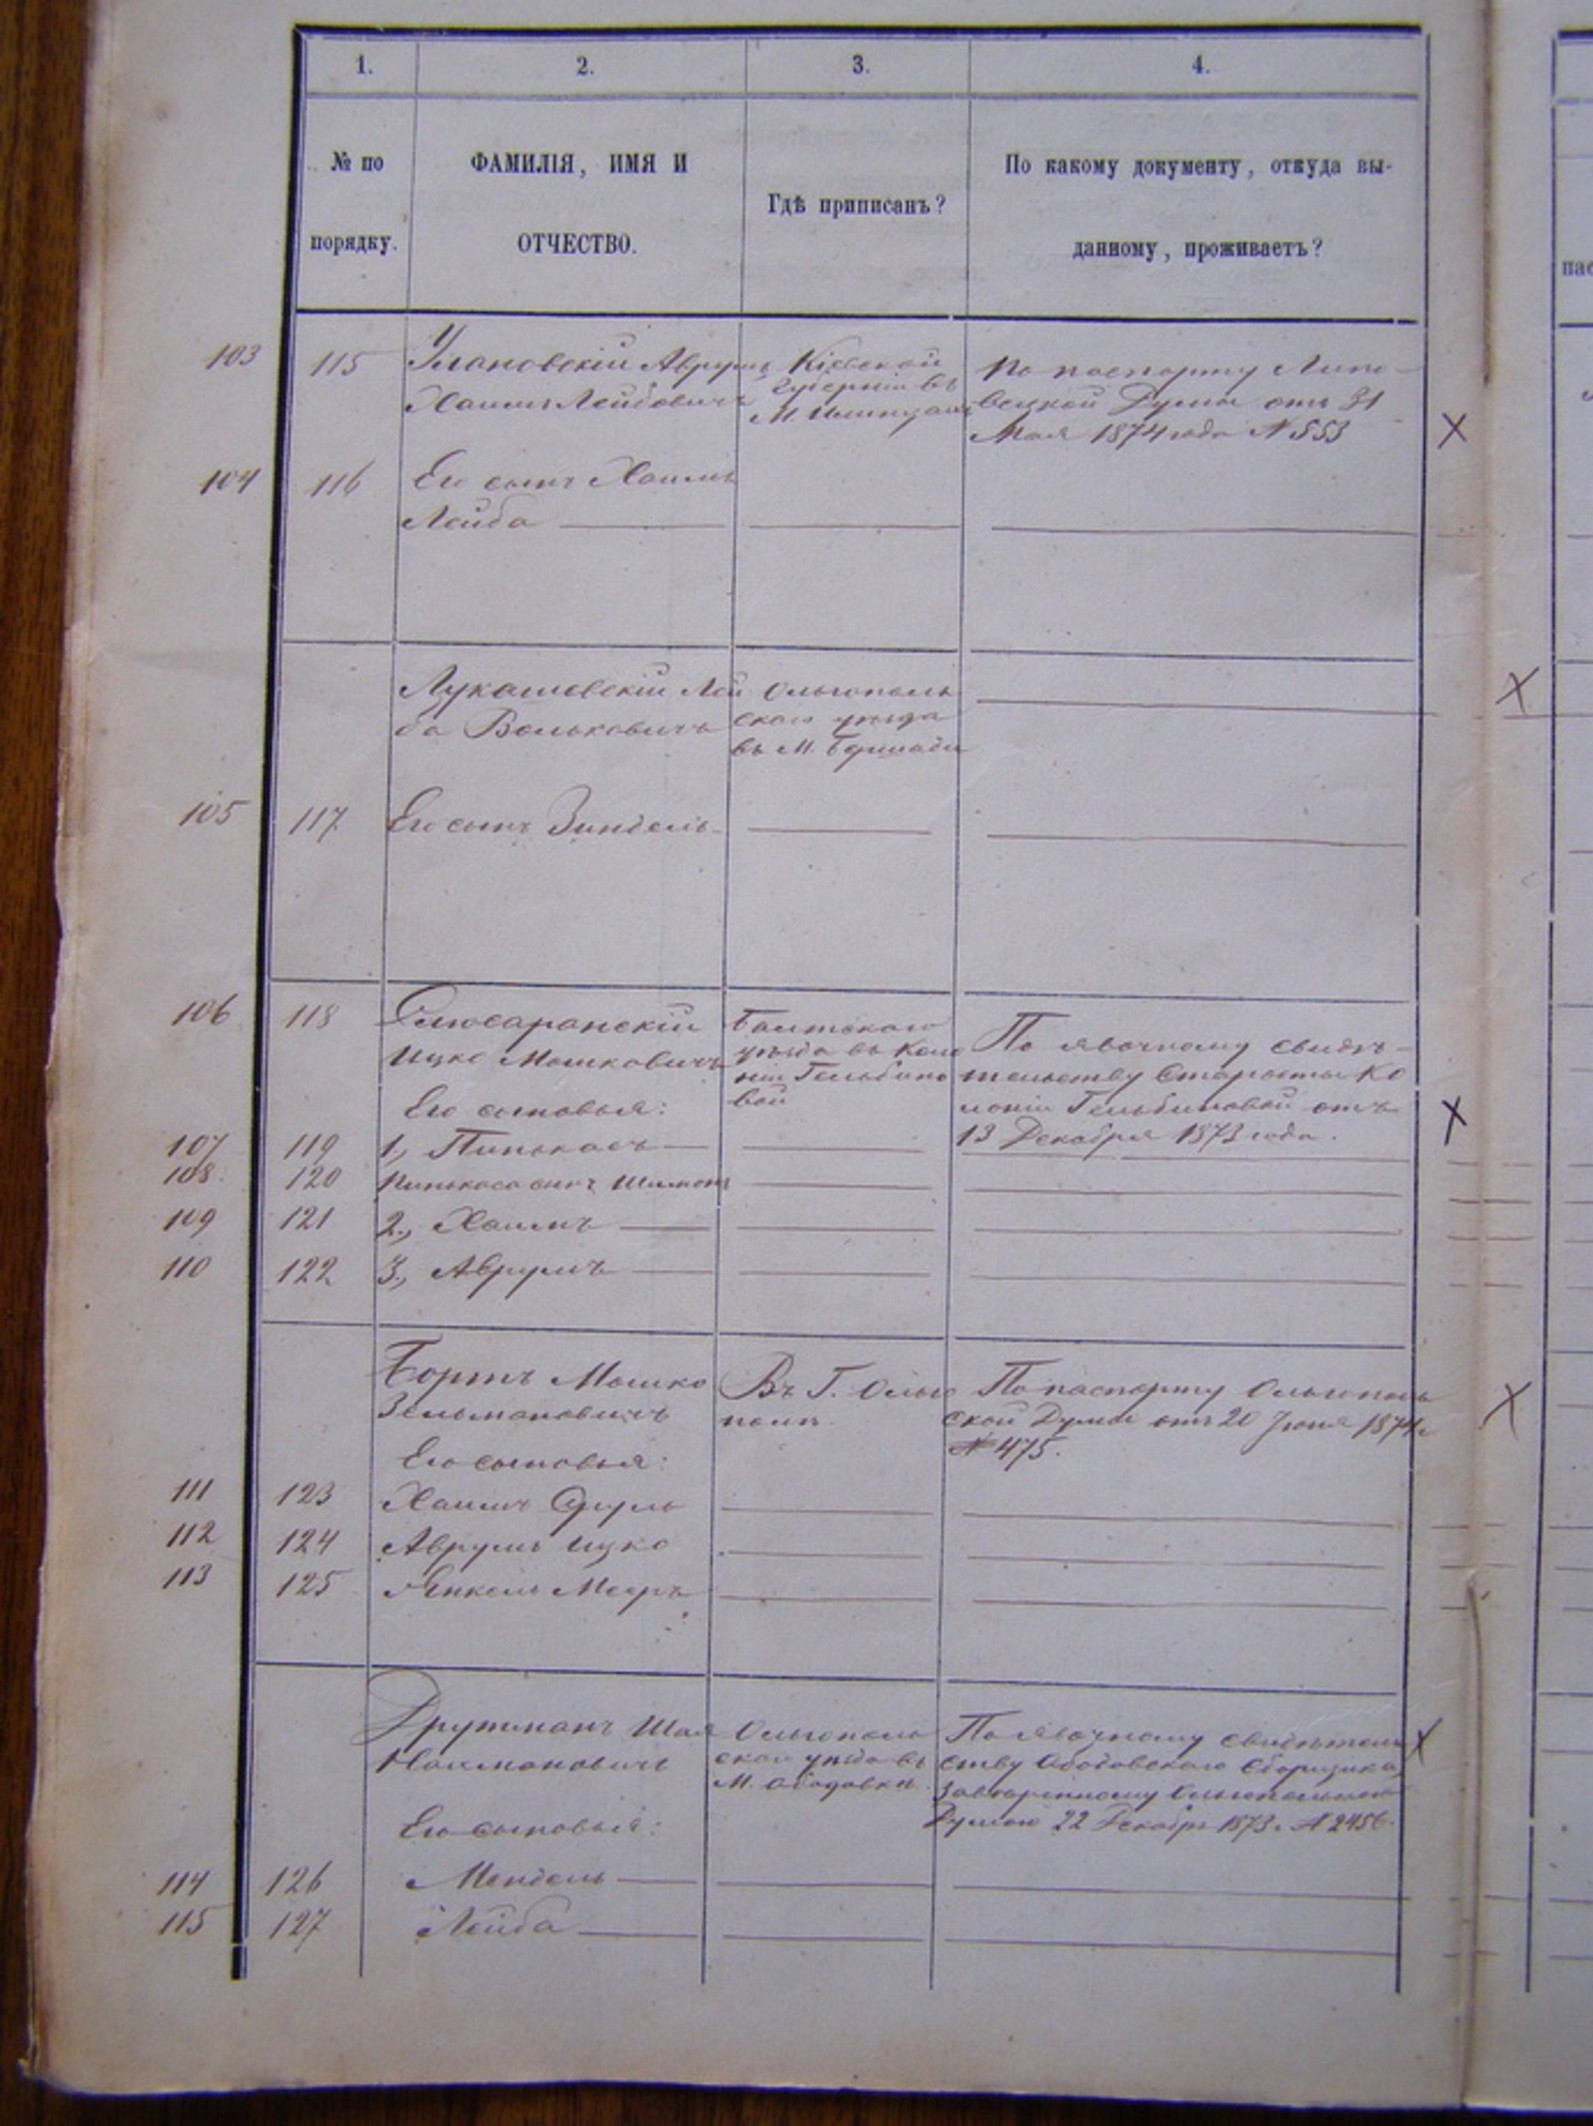 1. 2. 3. 4.
№ по
порядку.
ФАМИЛІЯ, ИМЯ И
ОТЧЕСТВО.
Гдѣ приписанъ?
По какому документу, откуда вы-
данному, проживаетъ?
пас
103 115 Улановскій Аврумъ
Хаимъ Лейбовичъ
Кіевской
Губерніи въ
М.
По паспорту Липо-
вецкой Думы отъ 31
Мая 1874 года № 553
104 116 Его сынъ Хаимъ
Лейба
Лукашевскій Лей
ба Вольковичъ
Ольгополь
скаго уѣзда
въ М. Бершади
105 117 Его сынъ Зиндель
106 118
Ицко Мошковичъ
Его сыновья:
Балтскаго
уѣзда въ Коло
ніи Гельбино
вой
По явочному свидѣ-
тельству Старосты Ко
лоніи Гельбиновой отъ
13 Декабря 1873 года.
107 119 1, Пинькасъ
108 120 Пинькаса сынъ Шимонъ
109 121 2, Хаимъ
110 122 3, Аврумъ
Бортъ Мошко
Зельмановичъ
Его сыновья:
Въ Г. Ольго
полѣ.
По паспорту Ольгополь
ской Думы отъ 20 Іюня 1874 г
№ 475.
111 123 Хаимъ Сруль
112 124 Аврумъ Ицко
113 125 Янкель Мееръ
Друтманъ Шая
Нахмановичъ
Его сыновья:
Ольгополь
скаго уѣзда въ
М. Ободовкѣ
По явочному свидѣтель
ству Ободовскаго Сборщика,
Думою 22 Декабр 1873 г. № 2456.
114 126 Мендель
115 127 Лейба